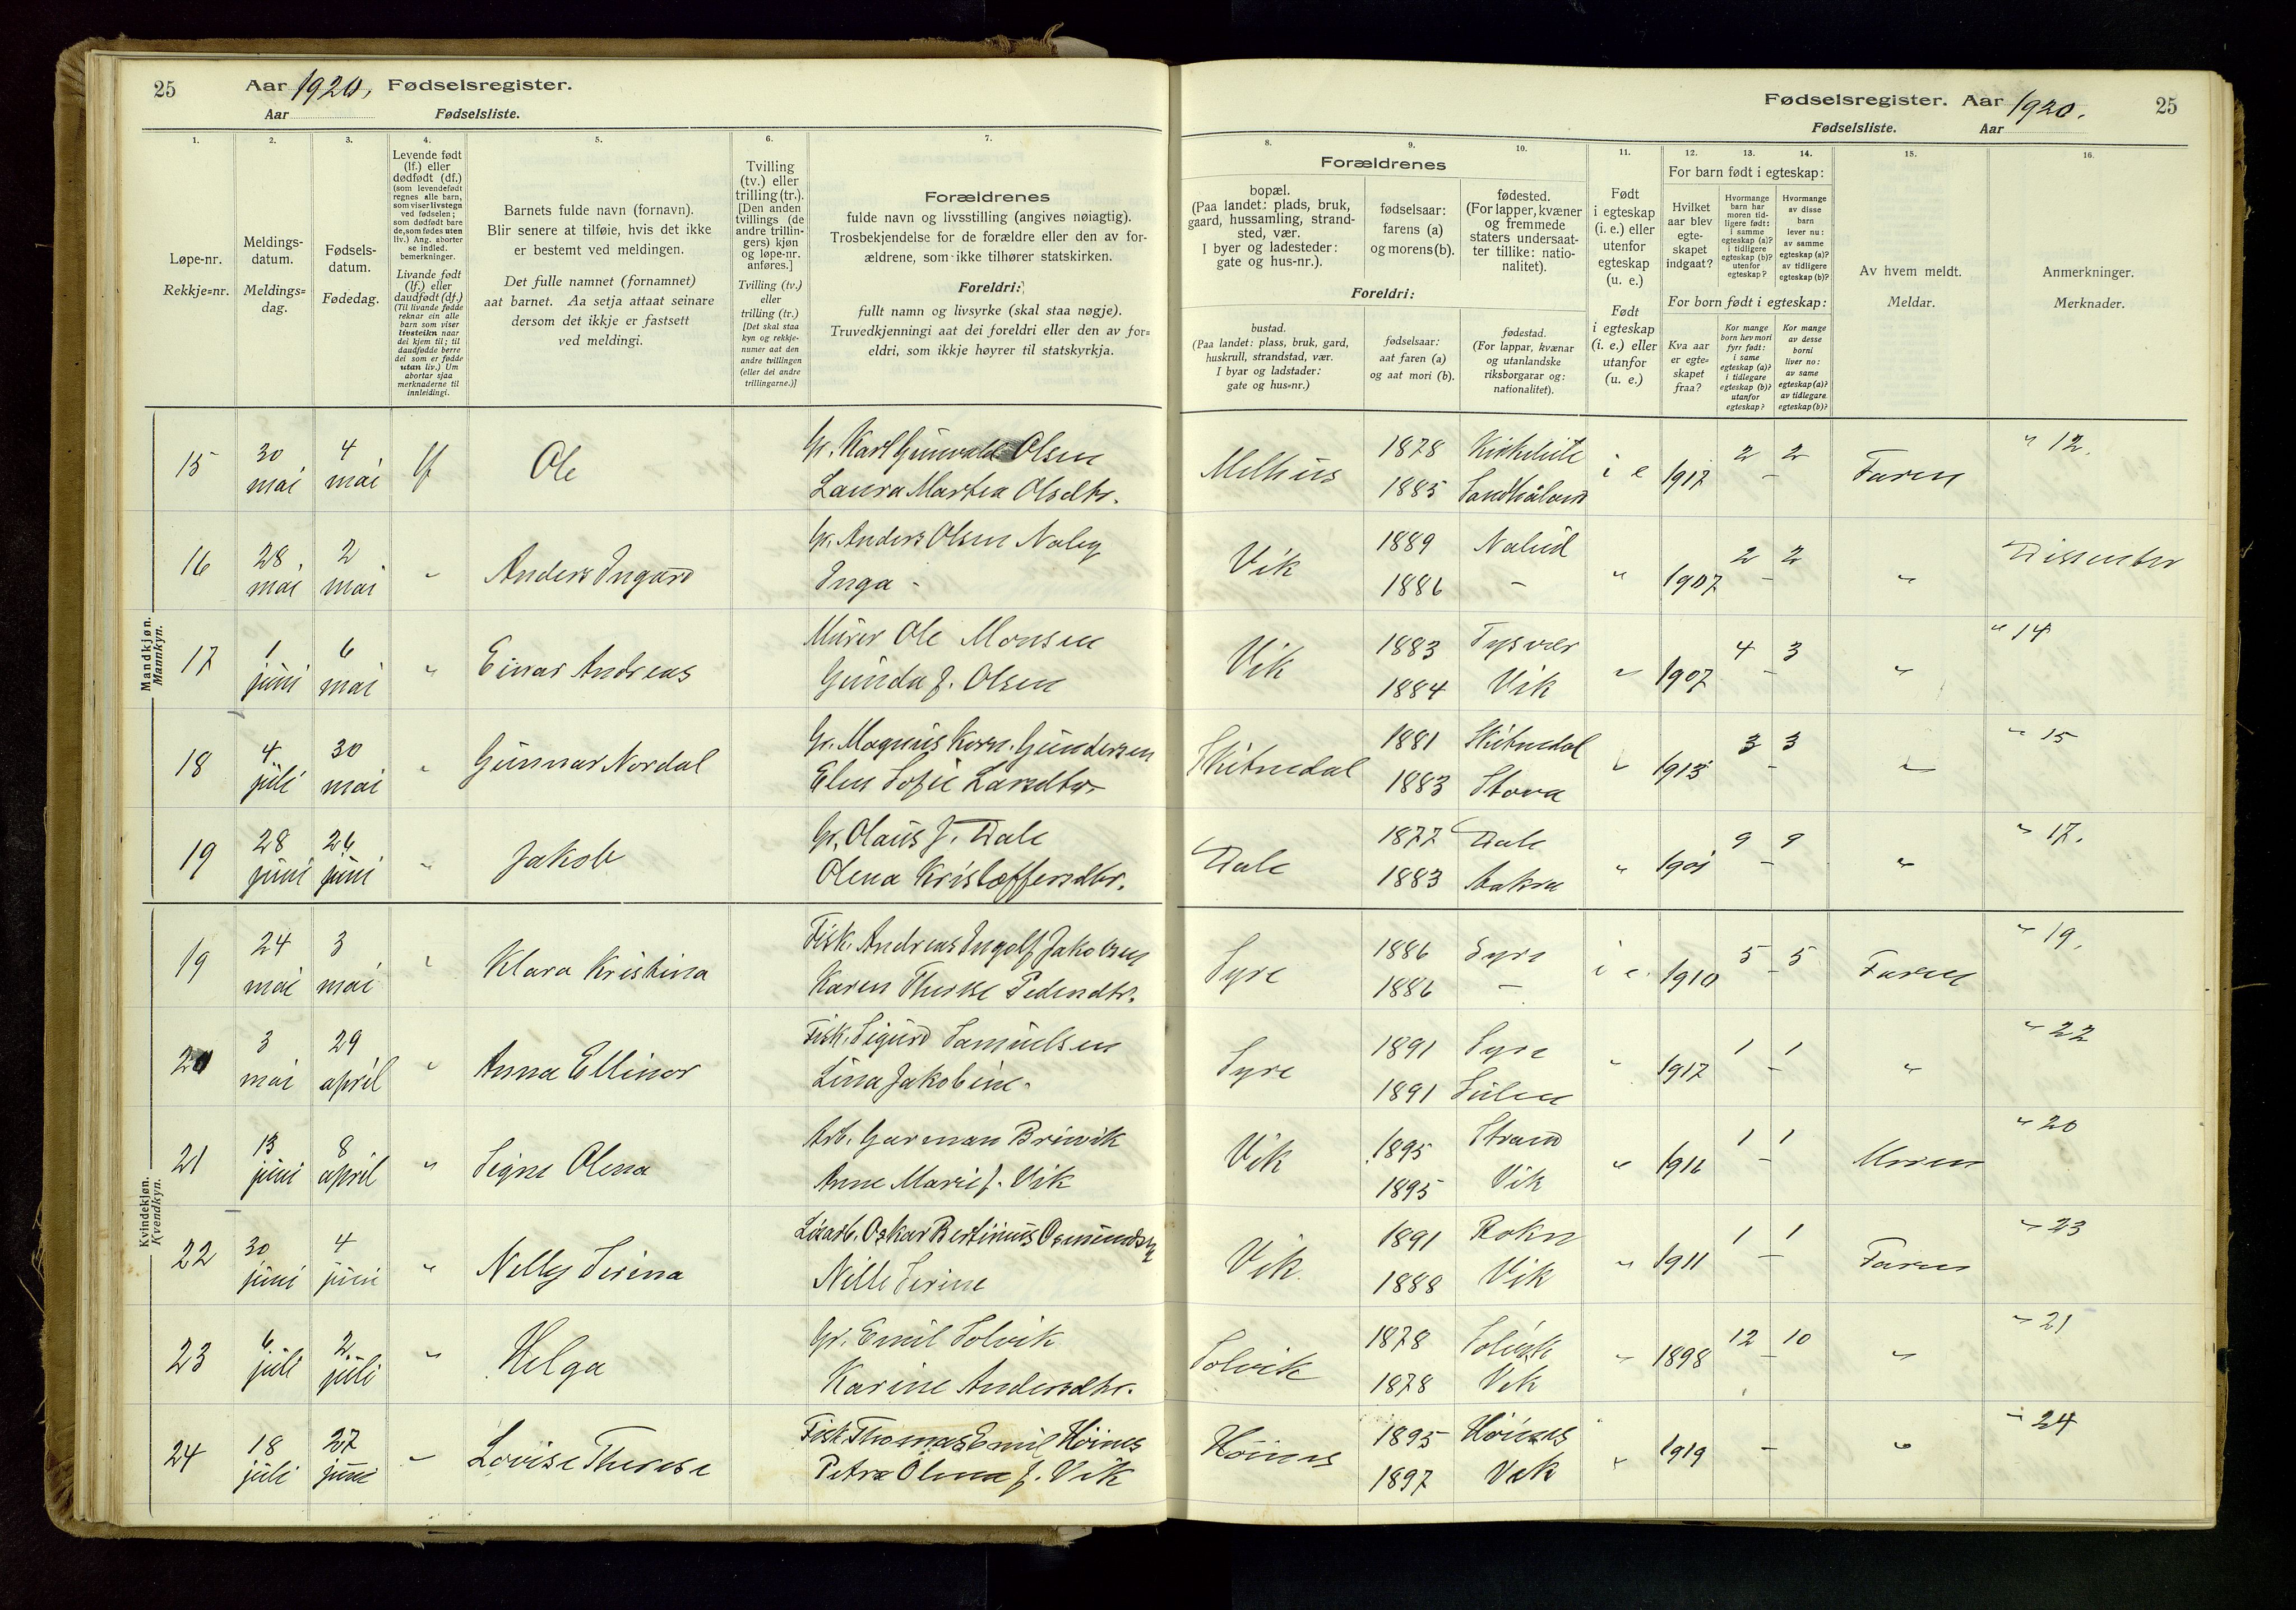 25
Aar 1920, Fødselsregister.
Aar Fødselsliste.
1.
2.
3.
4.
5.
6.
7.
Løpe-nr.
Rekkje=nr.
Meldings-
datum.
Meldings=
dag.
Fødsels-
datum.
Fødedag.
Levende født
(lf.) eller
dødfødt (df.)
(som levendefødt
regnes alle barn,
som viser livstegn
ved fødselen;
som dødfødt bare
de, som fødes uten
liv.) Ang. aborter
se indled.
bemerkninger.
Livande født
(lf.) eller
daudfødt (df.)
(Til livande fødde
reknar ein alle
barn som viser
livsteikn naar
dei kjem til; til
daudfødde berre
dei som er fødde
utan liv.) Um
abortar sjaa
merknaderne til
innleidingi.
Barnets fulde navn (fornavn).
Blir senere at tilføie, hvis det ikke
er bestemt ved meldingen.
Det fulle namnet (fornamnet)
aat barnet. Aa setja attaat seinare
dersom det ikkje er fastsett
ved meldingi.
Tvilling
(tv.) eller
trilling (tr.).
[Den anden
tvillings (de
andre trillin-
gers) kjøn
og løpe-nr.
anføres.]
Tvilling (tv.)
eller
trilling (tr.)
[Det skal staa
kyn og rekkje-
numer aat den
andre tvillingen
(eller dei andre
trillingarne.)]
Forældrenes
fulde navn og livsstilling (angives nøiagtig).
Trosbekjendelse for de forældre eller den av for-
ældrene, som ikke tilhører statskirken.
Foreldri:
fullt namn og livsyrke (skal staa nøgje).
Truvedkjenningi aat dei foreldri eller den av for=
eldri, som ikkje høyrer til statskyrkja.
Mandkjøn.
Mannkyn.
15 30 mai 4 mai lf Ole
Gr. Karl Gunvald Olsen
Laura Martea Olsdtr.
16 28 mai 2 mai " Anders Ingard
Gr. Anders Olsen
Inga -
17 1 juni 6 mai " Einar Andreas
Murer Ole Monsen
Gunda J. Olsen
18 4 juli 30 mai " Gunnar Nordal
Gr. Magnus Korn. Gundersen
Elen Sofie Larsdtr
19 28 juni 26 juni " Jakob
Gr. Olaus J. Dale
Olena Kristoffersdtr.
Kvindekjøn.
Kvendkyn.
19 24 mai 3 mai " Klara Kristina
Fisk. Andreas Ingolf Jakobsen
Karen Therese Pedersdtr.
20 3 mai 29 april " Anna Ellinor
Fisk. Sigurd Samuelsen
Lina Jakobine.
21 13 juni 8 april " Signe Olena
Arb. Garman Brivik
Anne Marie J. Vik
22 30 juni 4 juni " Nelly Serina
Oskar Bertinius Osmundsen
Nille Serine
23 6 juli 2 juli " Helga
Gr. Emil Solvik
Karine Andersdtr.
24 18 juli 27 juni " Lovise Therese
Fisk. Thomas Emil Høines
Petra Olena J. Vik
Fødselsregister. Aar 1920.
25
Fødselsliste. Aar
8.
9.
10.
11.
12.
13.
14.
15.
16.
Forældrenes
bopæl.
(Paa landet: plads, bruk,
gaard, hussamling, strand-
sted, vær.
I byer og ladesteder:
gate og hus-nr.).
fødselsaar:
farens (a)
og morens (b).
fødested.
(For lapper, kvæner
og fremmede
staters undersaat-
ter tillike: natio-
nalitet).
Foreldri:
bustad.
(Paa landet: plass, bruk, gard,
huskrull, strandstad, vær.
I byar og ladstader:
gate og hus=nr.)
fødselsaar:
aat faren (a)
og aat mori (b).
fødestad.
(For lappar, kvænar
og utanlandske
riksborgarar og:
nationalitet).
Født
i egteskap
(i. e.) eller
utenfor
egteskap
(u. e.)
Født
i egteskap
(i. e.) eller
utanfor
(u. e.)
For barn født i egteskap:
Hvilket
aar blev
egte-
skapet
indgaat?
Hvormange
barn har
moren tid-
ligere født:
i samme
egteskap (a)?
i tidligere
egteskap (b)?
utenfor
egteskap?
Hvormange
av disse
barn
lever nu:
av samme
egteskap (a)?
av tidligere
egteskap (b)?
For born født i egteskap:
Kva aar
er egte-
skapet
fraa?
Kor mange
born hev mori
fyrr født:
i same
egteskap (a)?
i tidlegare
egteskap (b)?
utanfor
egteskap?
Kor mange
av desse
borni
liver no:
av same
egteskap (a)?
av tidlegare
egteskap (b)?
Av hvem meldt.
Meldar.
Anmerkninger.
Merknader.
Melhus 1878 i e 1917 2 - 2 Faren " 12.
1885
Vik 1889 " 1907 2 - 2 " Dissenter
1886 -
Vik 1883 Tysvær " 1907 4 - 3 " " 14
1884 Vik
Skitnedal 1881 Skitnedal " 1913 3 - 3 " " 15
1883 Stova
Dale 1877 Dale " 1901 9 - 9 " " 17.
1883 Aakra
Syre 1886 Syre i e. 1910 5 - 5 Faren " 19.
1886 -
Syre 1891 Syre " 1917 1 - 1 " " 22
1891
Vik 1895 Strand " 1916 1 - 1 Moren " 20
1895 Vik
Vik. 1891 " 1911 1 - 1 Faren " 23
1888 Vik
Solvik 1878 Solvik " 1898 12 - 10 " " 21
1878 Vik
Høines 1895 Høines " 1919 - " " 24
1897 Vik